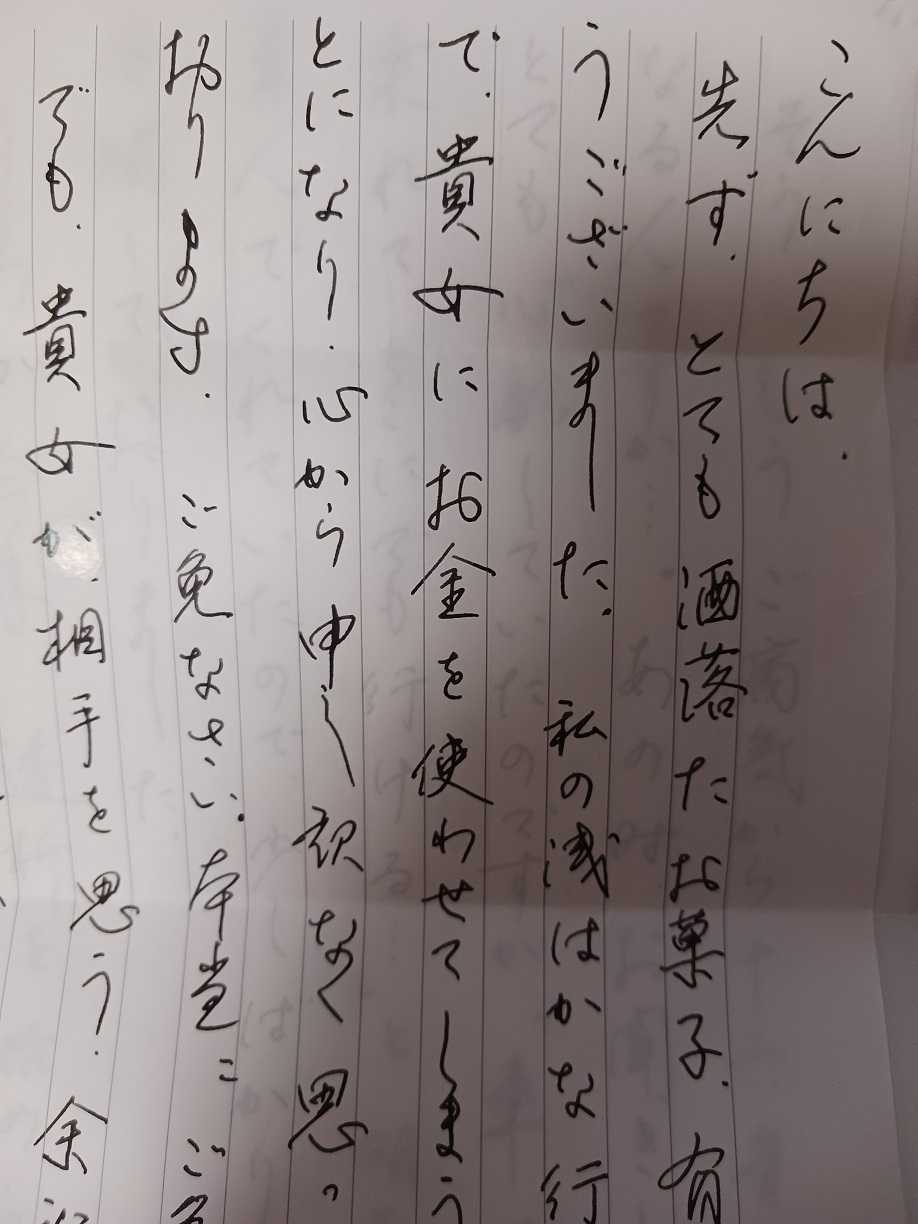 こんにちは.
先ず. とても洒落たお菓子. 有
うございました. 私の浅はかな行
で. 貴女にお金を使わせてしまう
とになり. 心から申し訳なく思っ
おります. ご免なさい. 本当にご
でも. 貴女が. 相手を思う. 余